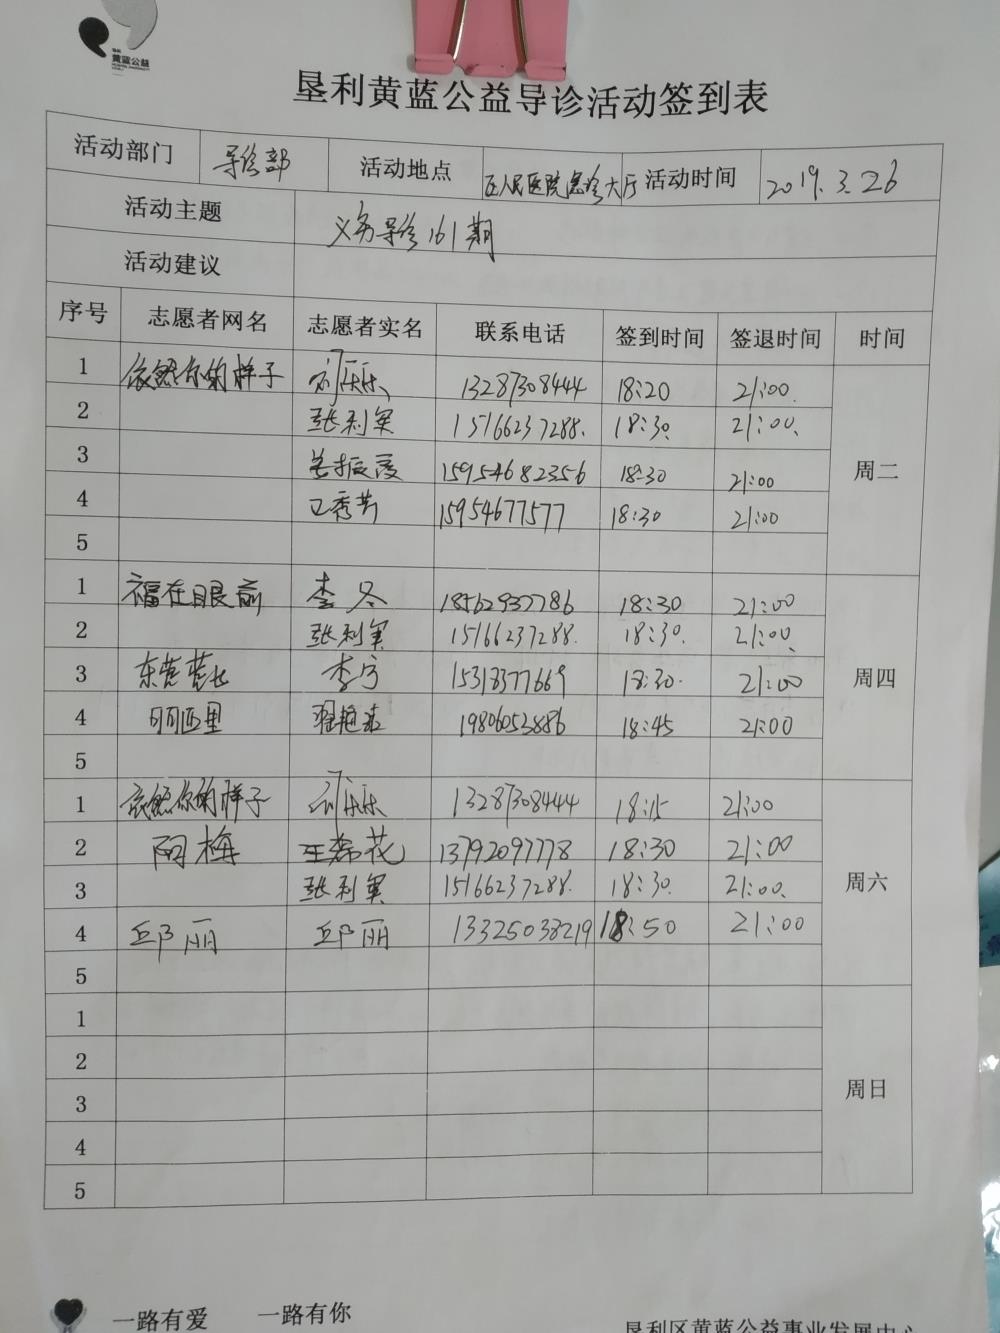 黄蓝公益
垦利黄蓝公益导诊活动签到表
活动部门 导诊部 活动地点 区人民医院急诊大厅 活动时间 2019.3.26
活动主题 义务导诊161期
活动建议
序号 志愿者网名 志愿者实名 联系电话 签到时间 签退时间 时间
1 依然你的样子 刘乐乐 13287308444 18:20 21:00
2 张利军 15166237288 18:30 21:00
3 振霞 15954682356 18:30 21:00
4 王秀芳 15954677577 18:30 21:00
5
周二
1 福在眼前 李冬 18562937786 18:30 21:00
2 张利军 15166237288 18:30 21:00
3 李宁 15318377669 18:30 21:00
4 19806053886 18:45 21:00
5
周四
1 依然你的样子 刘乐乐 13287308444 18:15 21:00
2 阿梅 王荣花 13792097778 18:30 21:00
3 张利军 15166237288 18:30 21:00
4 邱丽 邱丽 13325038219 18:50 21:00
5
周六
1
2
3
4
5
周日
一路有爱 一路有你
垦利区黄蓝公益事业发展中心